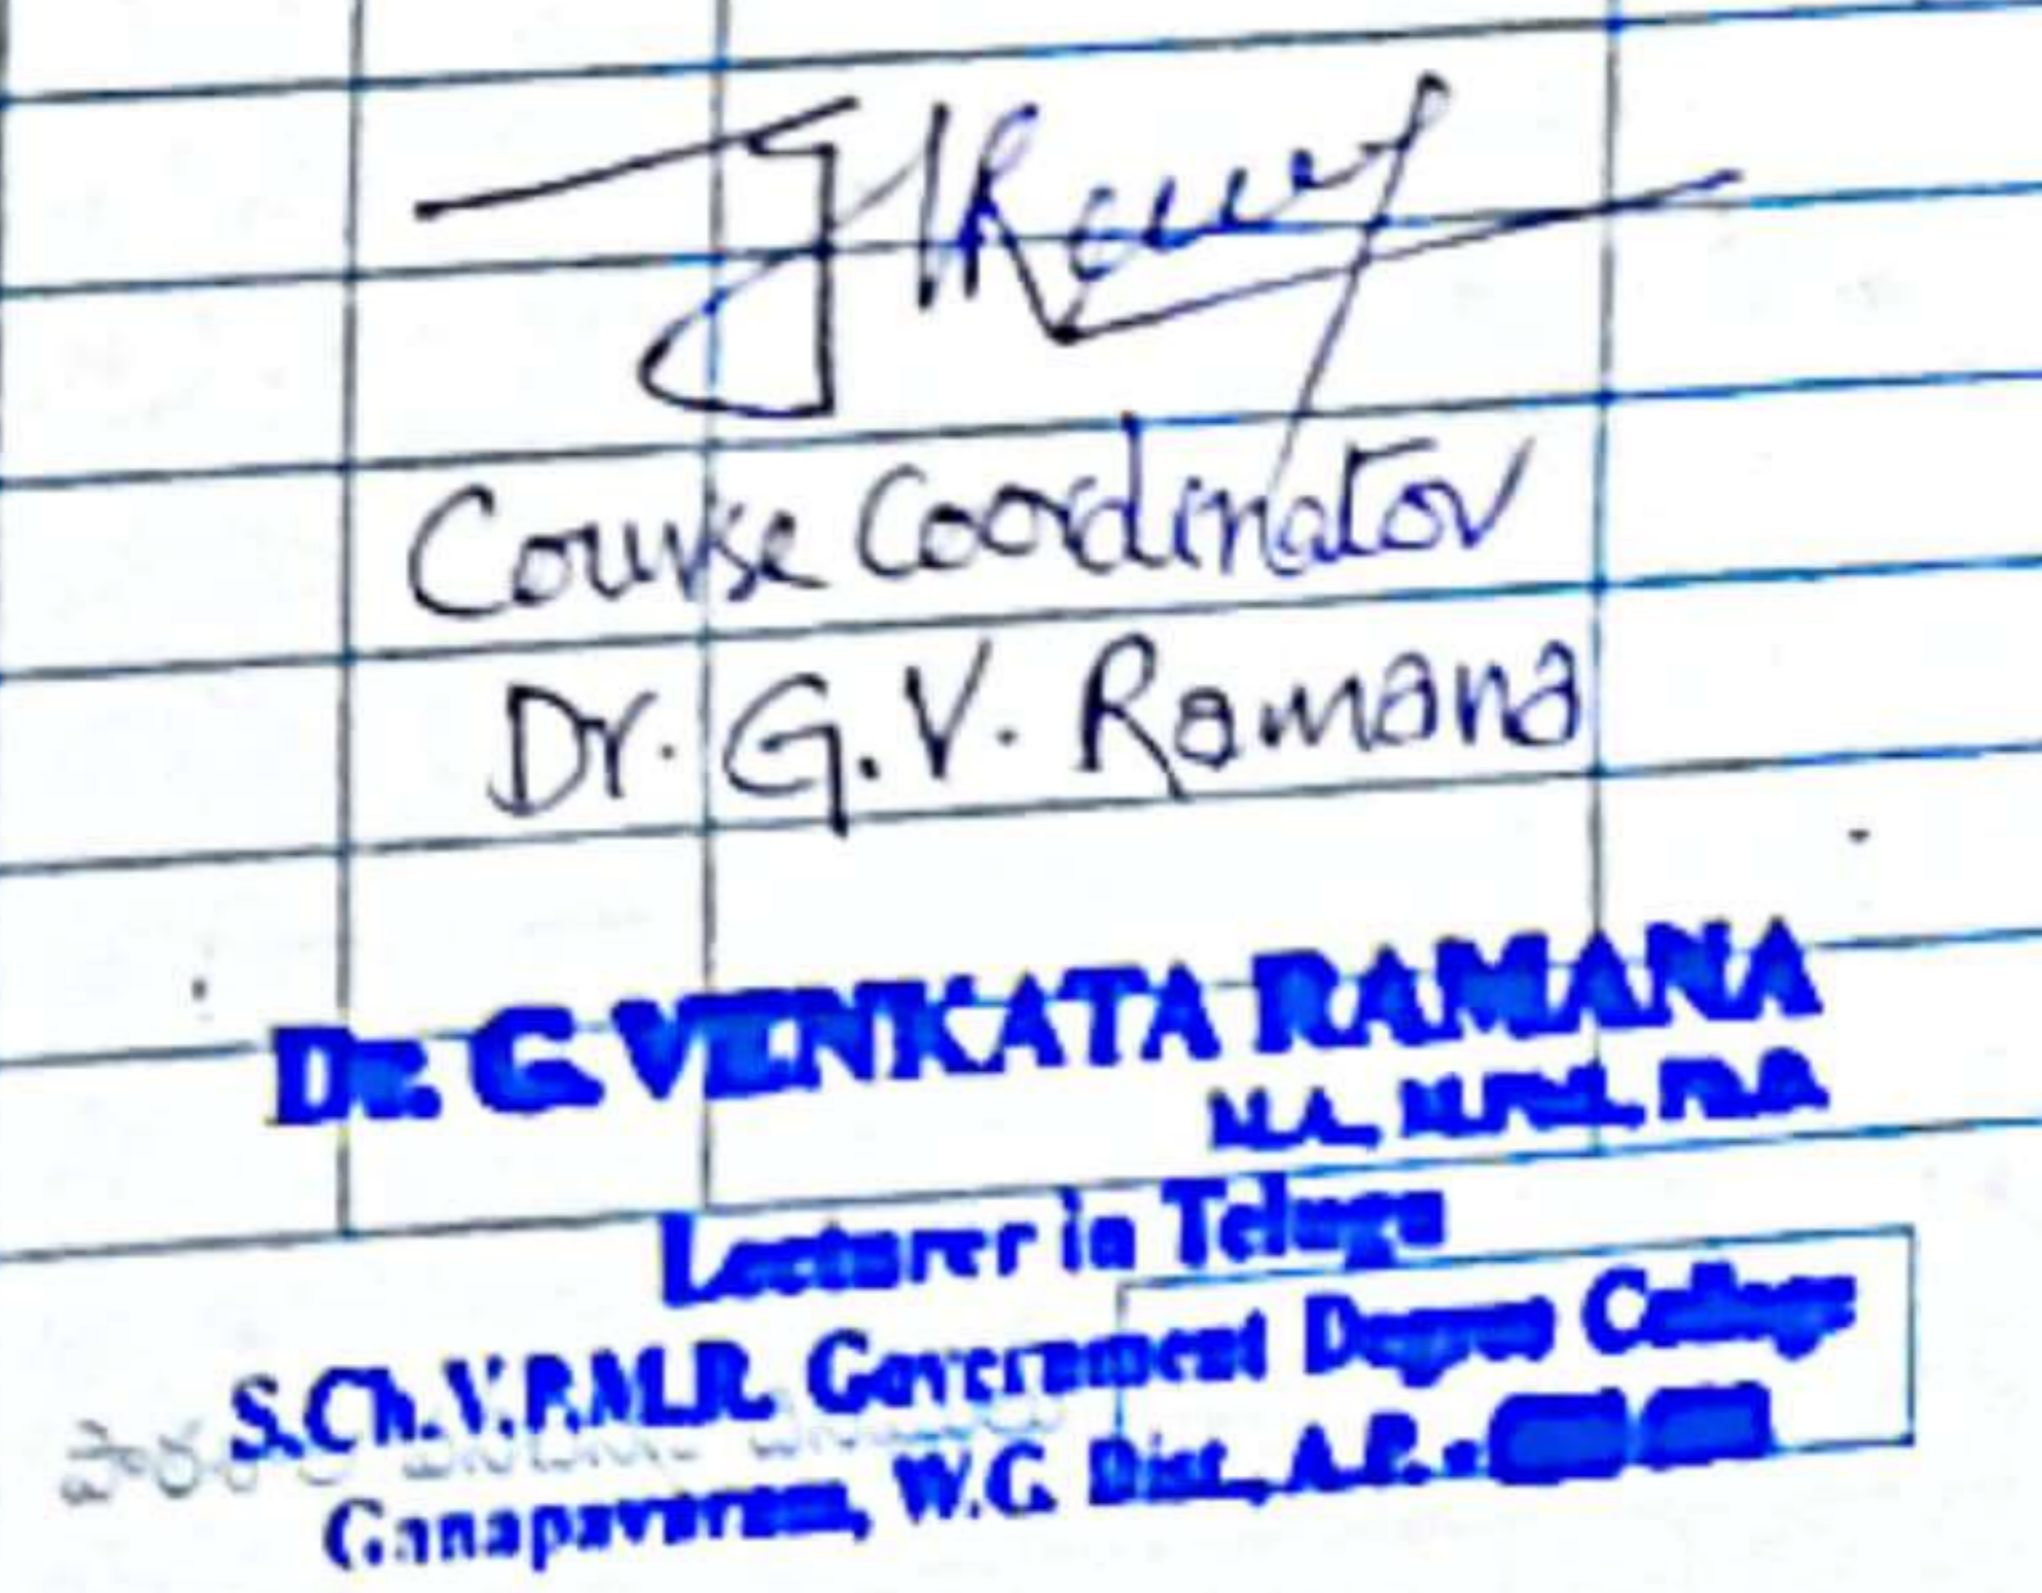 Course Coordinator
Dr. G.V. Ramana
Dr. G. VENKATA RAMANA
M.A., M.Phil., Ph.D.
Lecturer in Telugu
S.Ch.V.P.M.R. Government Degree College
Ganapavaram, W.G. Dist., A.P. -